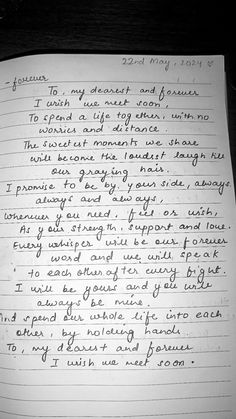 22nd May, 2024
- forever
To, my dearest and forever
I wish we meet soon,
To spend a life together, with no
worries and distance.
The sweetest moments we share
will become the loudest laugh like
our graying hair.
I promise to be by your side, always
always and always,
Whenever you need, feel or wish,
As your strength, support and love.
Every whisper will be our forever
word and we will speak
to each other after every fight.
I will be yours and you will
always be mine.
And spend our whole life into each
other, by holding hands.
To, my dearest and forever
I wish we meet soon.